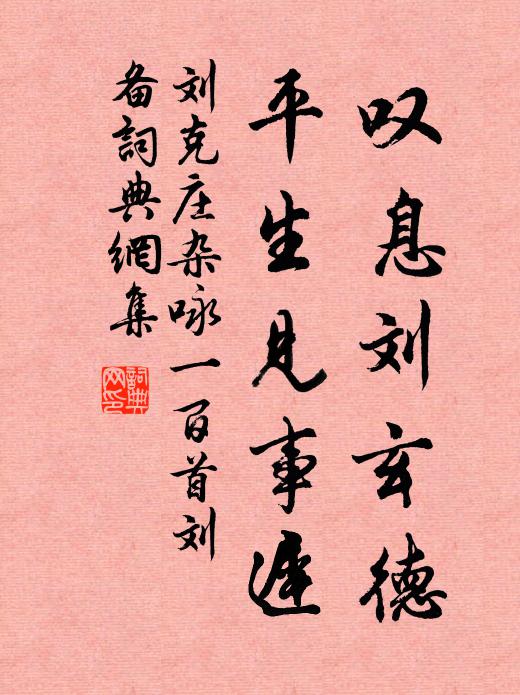 叹息刘玄德
平生见事迟
刘克庄杂咏一百首刘
备詞典網集
詞典网印